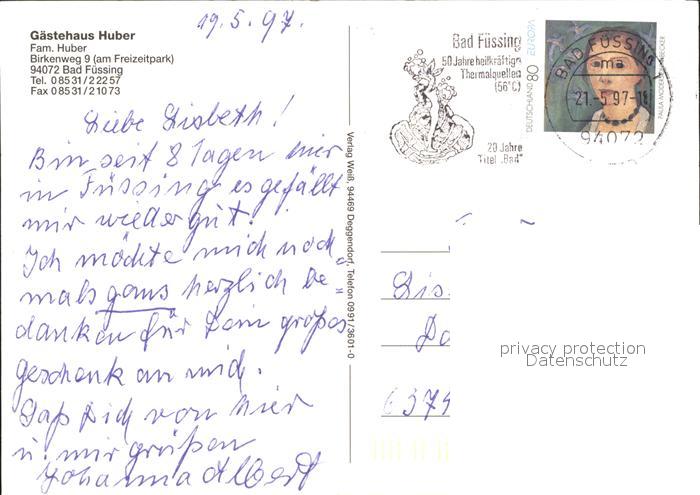 19.5.97.
Gästehaus Huber
Fam. Huber
Birkenweg 9 (am Freizeitpark)
94072 Bad Füssing
Tel. 08531/22257
Fax 08531/21073
Liebe Lisbeth!
Bin seit 8 Tagen hier
in Füssing es gefällt
mir wieder gut.
Ich möchte mich noch
mals ganz herzlich be
danken für Dein großes
Geschenk an mich.
Laß Dich von hier
u. mir grüßen
Johanna Albert
Verlag Weiß, 94469 Deggendorf, Telefon 0991/3601-0
Bad Füssing
50 Jahre heilkräftige
Thermalquellen
(56°C)
20 Jahre
Titel „Bad"
DEUTSCHLAND 80 EUROPA
PAULA MODERSOHN-BECKER
BAD FÜSSING 1
ma
21.-5.97-18
94072
Lis.
Do
6374
privacy protection
Datenschutz